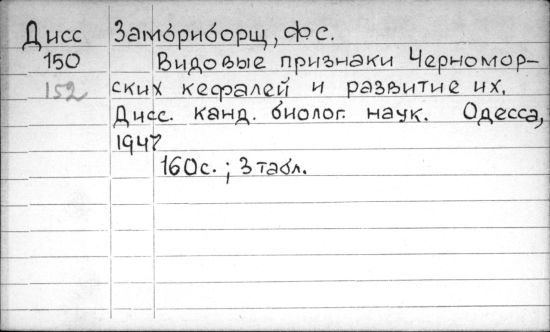 Дисс Замбриборщ, Ф С.
150 Видовые признаки Черномор-
152 ских кефалей и развитие их.
Дисс. канд. биолог. наук. Одесса,
1947
160с. ; 3 табл.